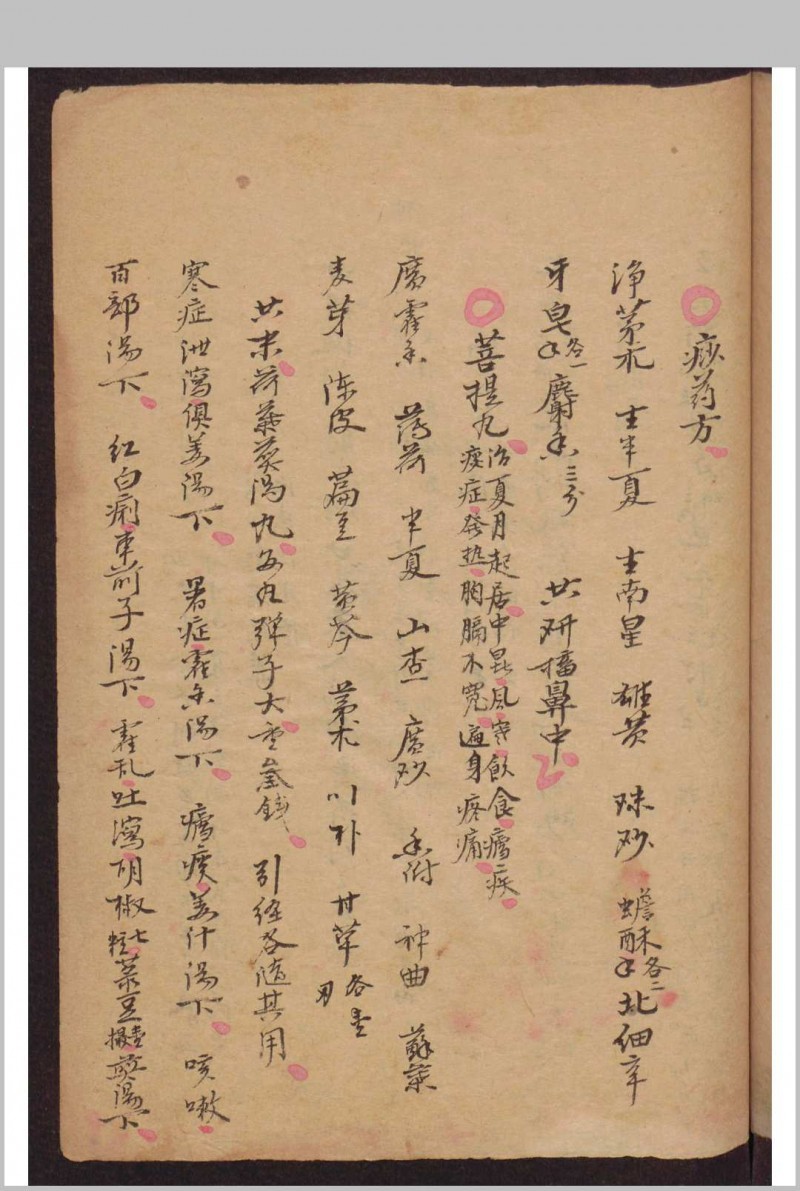 痧药方
净茅朮 生半夏 生南星 雄黄 珠砂 蟾酥各二 北细辛
牙皂各一 麝香三分 共研搐鼻中
菩提丸 治夏月起居中暑风寒飲食瘧疾
痰症發热胸膈不宽遍身疼痛
廣霍香 薄荷 半夏 山查 廣砂 香附 神曲 蘇葉
麦芽 陈皮 萹豆 黄芩 茅术 川朴 甘草各壹
共末荷葉煎湯丸 每丸弹子大重壹钱 引经各隨其用
寒症泄瀉俱姜湯下 暑症霍香湯下 瘧疾姜汁湯下 咳嗽
百部湯下 红白痢車前子湯下 霍乱吐瀉胡椒七粒菉豆壹撮煎湯下